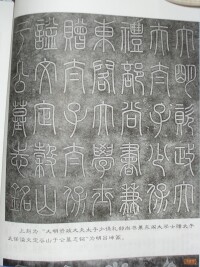 大明資政大
夫太子少保
禮部尚書兼
東閣大學士
贈太子太保
諡文定穀山
于公墓誌銘
上图为“大明资政大夫太子少保礼部尚书兼东阁大学士赠太子
太保谥文定谷山于公墓志铭”